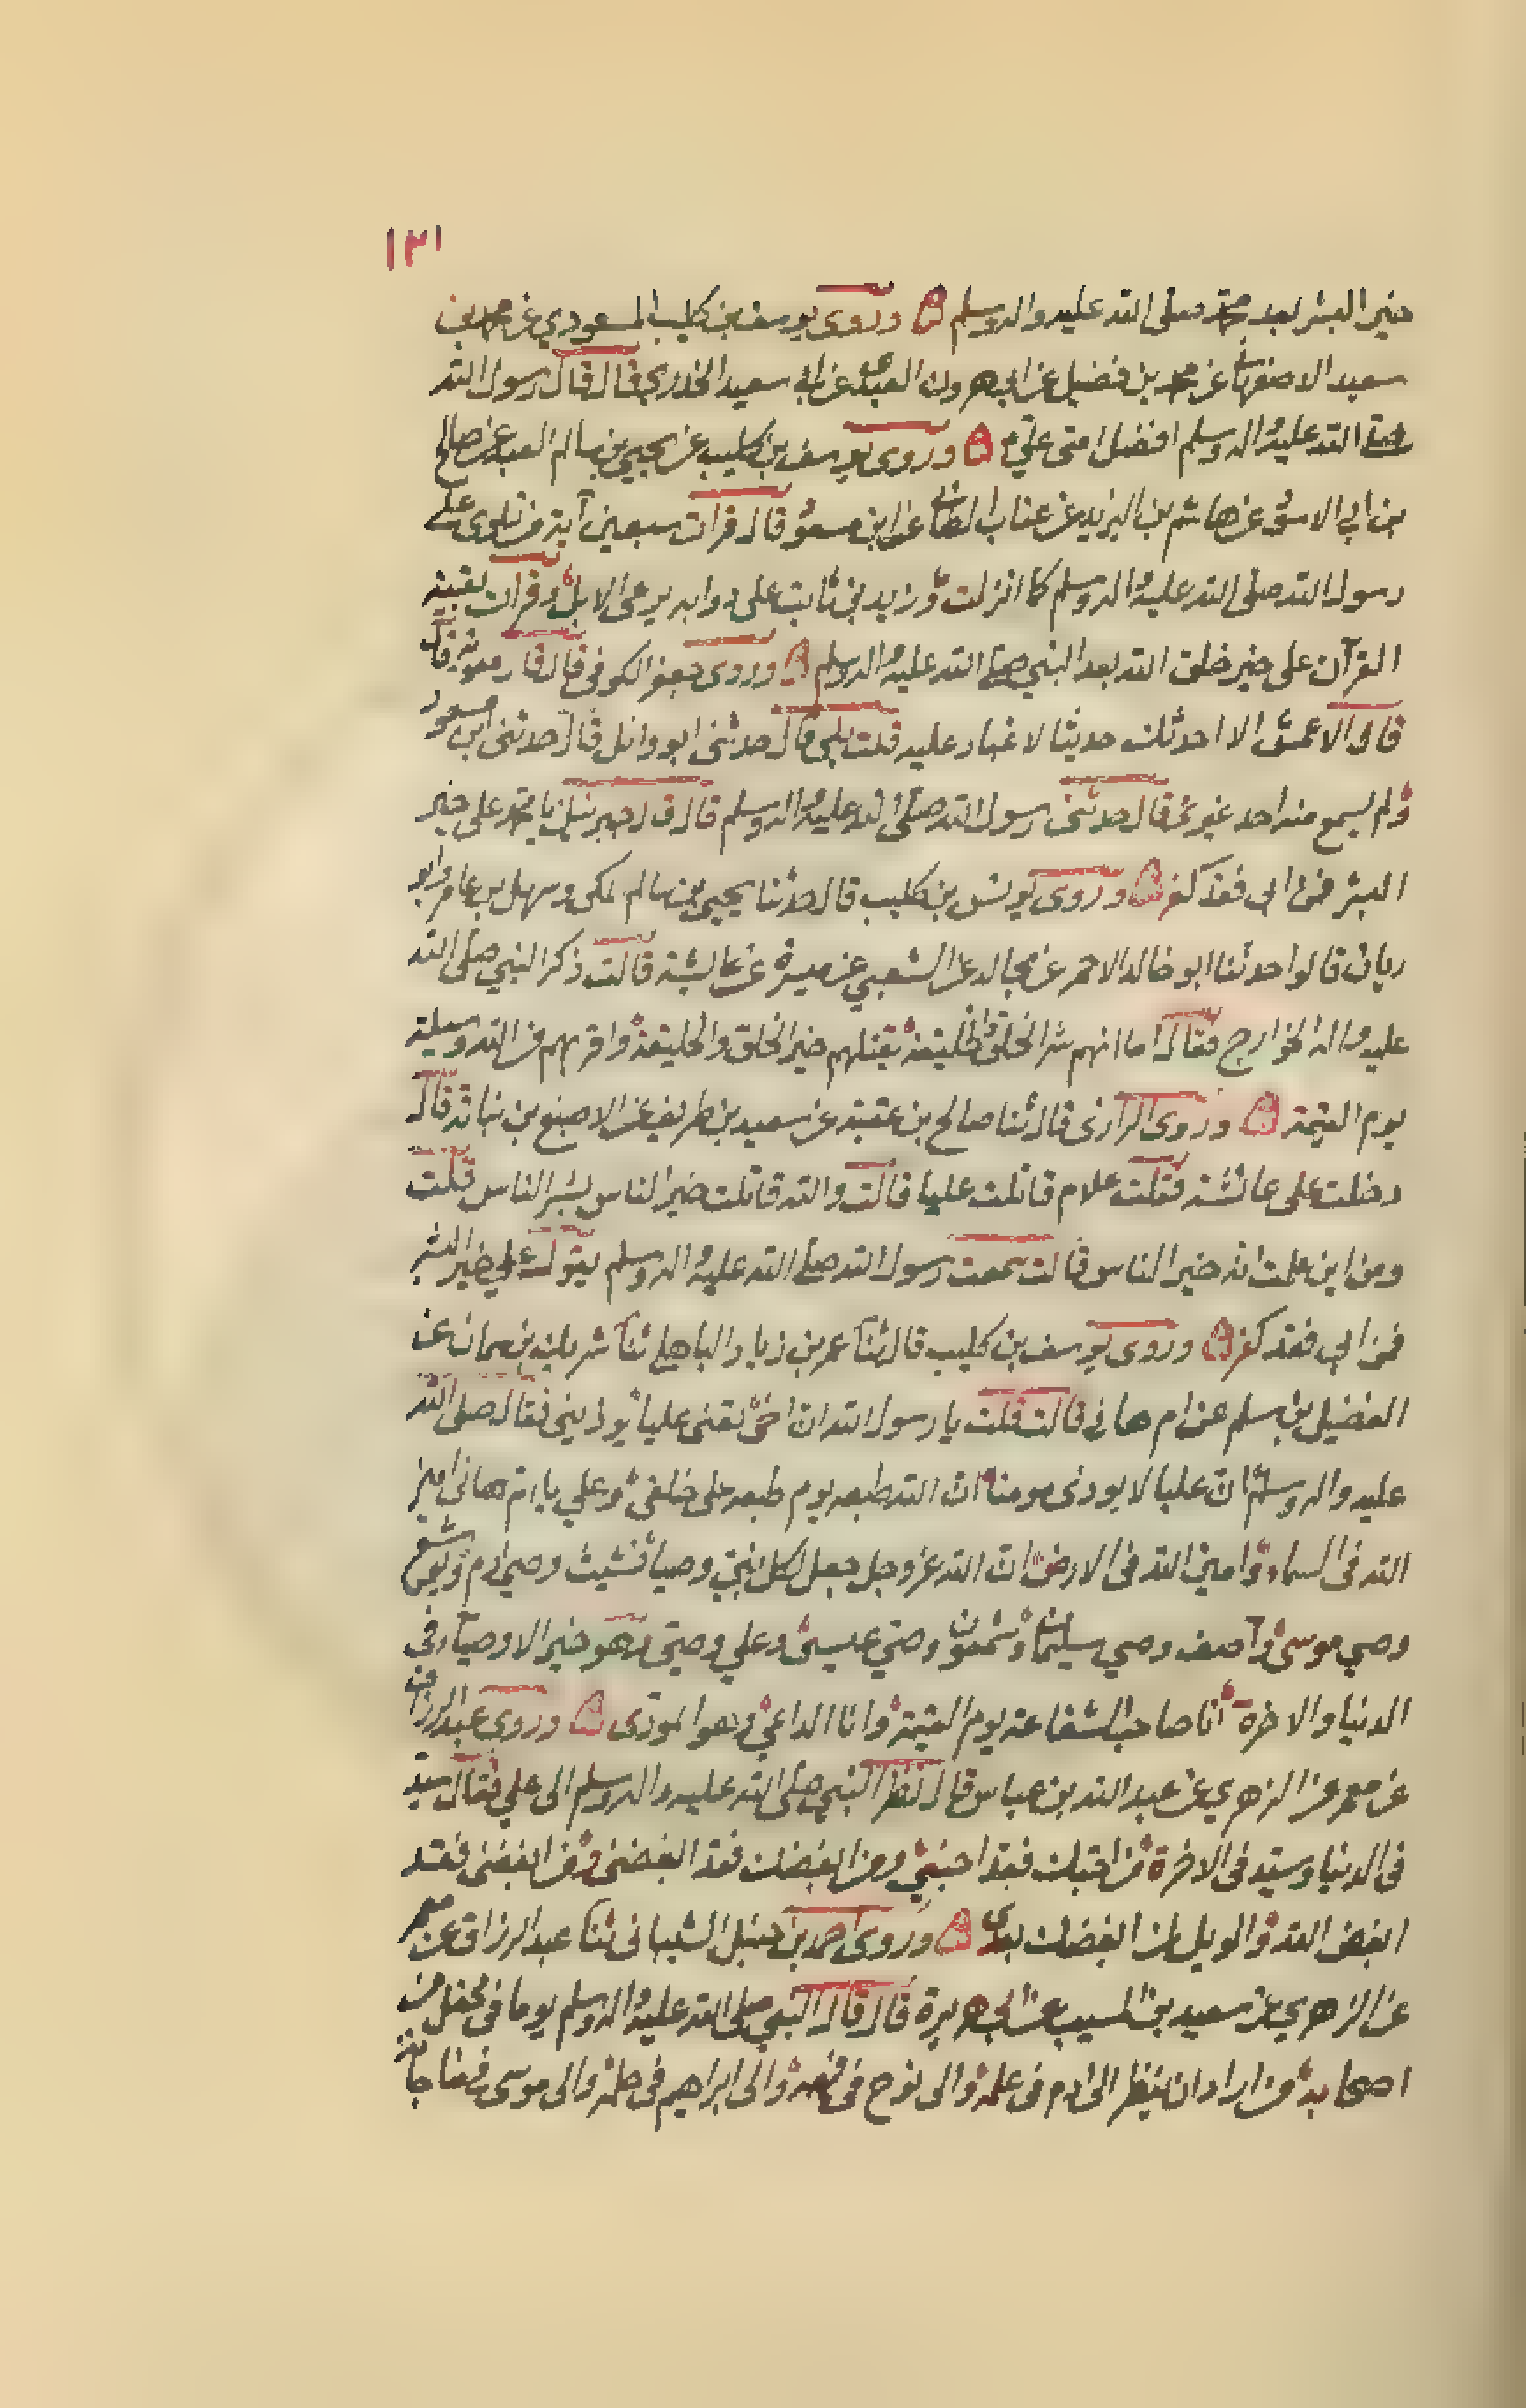 ١٣١
خير البشر بعد محمد صلى الله عليه واله وسلم ۞ وروى يوسف بن كليب المسعودي عن محمد بن
سعيد الاصفهاني عن محمد بن فضيل عن ابي هرون العبدي عن ابي سعيد الخدري قال قال رسول الله
صلى الله عليه واله وسلم افضل امتى علي ۞ وروى يوسف بن كليب عن يحيى بن سالم العبد عن صالح
بن ابي الاسود عن هاشم بن البريد عن عتاب عن ابن مسعود قال قرات سبعين آية من تلاوى على
رسول الله صلى الله عليه واله وسلم كما انزلت وزيد بن ثابت على دوابه يرعى الابل وقرات بقية
القرآن على خير خلق الله بعد النبي صلى الله عليه واله وسلم ۞ وروى جعفر الكوفى قال قال معوية قال
قال الاعمش الا احدثك حديثا لا غبار عليه قلت بلى قال حدثنى ابو وائل قال حدثنى ابن مسعود
ولم يسمع منه احد غيرى قال حدثنى رسول الله صلى الله عليه واله وسلم قال قال جبرئيل يا محمد على خير
البشر فمن ابى فقد كفر ۞ وروى يونس بن كليب قال حدثنا يحيى بن سالم المكى وسهل بن عامر وابو
ريان قالوا حدثنا ابو خالد الاحمر عن مجالد عن الشعبي عن ميسرة عن عائشة قالت ذكر النبي صلى الله
عليه واله الخوارج فقال اما انهم شر الخلق والخليقة يقتلهم خير الخلق والخليقة واقربهم من الله وسيلة
يوم القيمة ۞ وروى الرازى قال ثنا صالح بن عقبة عن سعيد بن طريف عن الاصبغ بن نباتة قال
دخلت على عائشة فقلت علام قاتلت عليا قالت والله قاتلت خير الناس بشر الناس قلت
ومن اين علمت انه خير الناس قالت سمعت رسول الله صلى الله عليه واله وسلم يقول علي خير البشر
فمن ابى فقد كفر ۞ وروى يوسف بن كليب قال ثنا عمر بن زياد الباهلي ثنا شريك بن سمان عن
الفضيل بن سلم عن ام هانى قالت قلت يا رسول الله ان اخى يعنى عليا يوذينى فقال صلى الله
عليه واله وسلم ان عليا لا يوذى مومنا ان الله طبعه يوم طبعه على خلقى وعلي يا ام هانى امين
الله فى السماء وامين الله فى الارض ان الله عز وجل جعل لكل نبي وصيا فشيث وصي ادم ويوشع
وصي موسى وآصف وصي سليمان وشمعون وصي عيسى وعلي وصيي وهو خير الاوصياء فى
الدنيا والاخرة انا صاحب الشفاعة يوم القيمة وانا الداعي وهو المودى ۞ وروى عبد الرزاق
عن معمر عن الزهري عن عبد الله بن عباس قال نظر النبي صلى الله عليه واله وسلم الى علي فقال سيد
فى الدنيا وسيد فى الاخرة من احبك فقد احبنى ومن ابغضك فقد ابغضنى ومن ابغضنى فقد
ابغض الله والويل لمن ابغضك بعدى ۞ وروى احمد بن حنبل الشيبانى ثنا عبد الرزاق عن معمر
عن الزهري عن سعيد بن المسيب عن ابي هريرة قال قال النبي صلى الله عليه واله وسلم يوما فى محفل من
اصحابه من اراد ان ينظر الى ادم فى علمه والى نوح فى والى ابراهيم فى حلمه والى موسى فى مناجاته